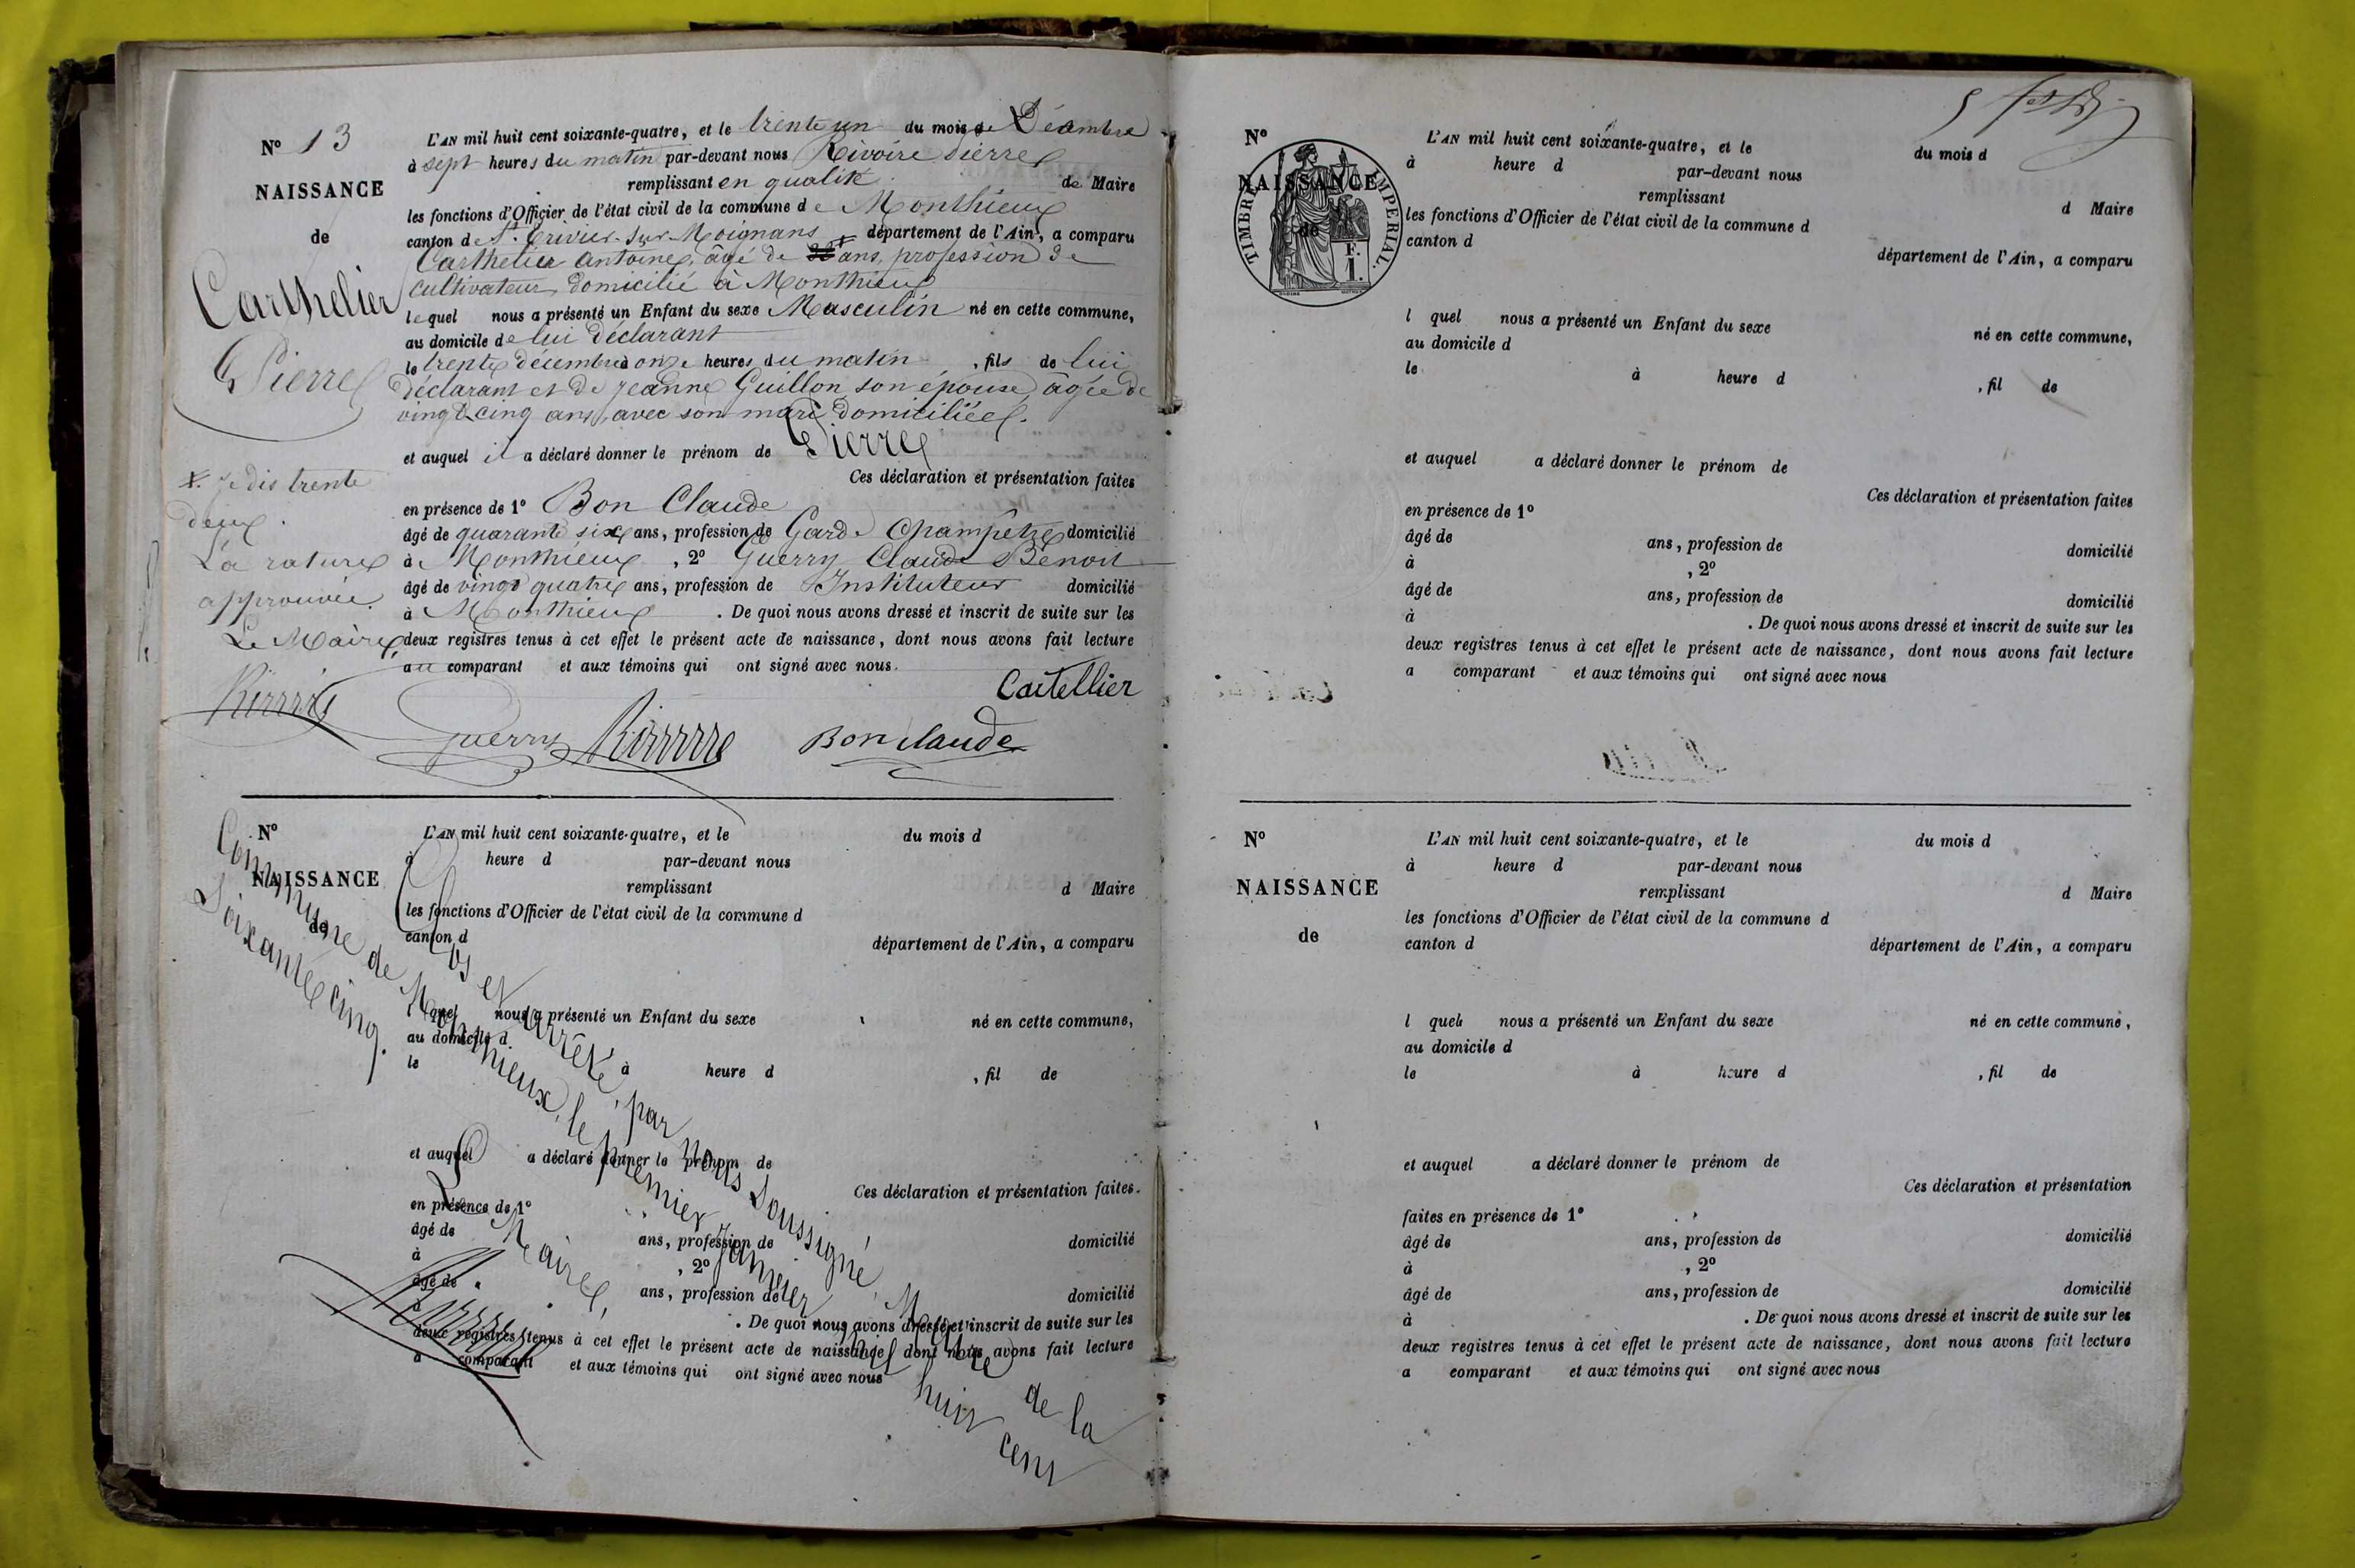 N° 13
NAISSANCE
de
Carthelier
Pierre
L'AN mil huit cent soixante-quatre, et le trente un du mois de Décembre
à sept heures du matin par-devant nous Rivoire Pierre
remplissant en qualité de Maire
les fonctions d'Officier de l'état civil de la commune de Monthieux
canton de St. Trivier-sur-Moignans, département de l'Ain, a comparu
Carthelier Antoine, âgé de ans, profession de
cultivateur, domicilié à Monthieux
lequel nous a présenté un Enfant du sexe Masculin né en cette commune,
au domicile de lui déclarant
le trente décembre à onze heures du matin, fils de lui
déclarant et de Jeanne Guillon, son épouse, âgée de
vingt cinq ans, avec son mari domiciliée.
et auquel il a déclaré donner le prénom de Pierre
Ces déclaration et présentation faites
en présence de 1° Bon Claude
âgé de quarante six ans, profession de Garde Champêtre domicilié
à Monthieux, 2° Guerry Claude Benoit
âgé de vingt quatre ans, profession de Instituteur domicilié
à Monthieux. De quoi nous avons dressé et inscrit de suite sur les
deux registres tenus à cet effet le présent acte de naissance, dont nous avons fait lecture
au comparant et aux témoins qui ont signé avec nous.
x. je dis trente
deux.
La rature
approuvée.
Le Maire,
Cartellier
Guerry Rivoire Bon Claude
N°
NAISSANCE
de
L'AN mil huit cent soixante-quatre, et le du mois d
à heure d par-devant nous
remplissant d Maire
les fonctions d'Officier de l'état civil de la commune d
canton d département de l'Ain, a comparu
l quel nous a présenté un Enfant du sexe né en cette commune,
au domicile d
le à heure d , fil de
et auquel a déclaré donner le prénom de
Ces déclaration et présentation faites.
en présence de 1°
âgé de ans, profession de domicilié
à , 2°
âgé de ans, profession de domicilié
à . De quoi nous avons dressé et inscrit de suite sur les
deux registres tenus à cet effet le présent acte de naissance, dont nous avons fait lecture
a comparant et aux témoins qui ont signé avec nous
Clos et arrêté, par nous soussigné, Maire de la
Commune de Monthieux, le premier Janvier mil huit cent
Soixante cinq.
Le Maire,
N°
NAISSANCE
de
TIMBRE IMPERIAL.
F.
1.
L'AN mil huit cent soixante-quatre, et le du mois d
à heure d par-devant nous
remplissant d Maire
les fonctions d'Officier de l'état civil de la commune d
canton d département de l'Ain, a comparu
l quel nous a présenté un Enfant du sexe né en cette commune,
au domicile d
le à heure d , fil de
et auquel a déclaré donner le prénom de
Ces déclaration et présentation faites
en présence de 1°
âgé de ans, profession de domicilié
à , 2°
âgé de ans, profession de domicilié
à . De quoi nous avons dressé et inscrit de suite sur les
deux registres tenus à cet effet le présent acte de naissance, dont nous avons fait lecture
a comparant et aux témoins qui ont signé avec nous
N°
NAISSANCE
de
L'AN mil huit cent soixante-quatre, et le du mois d
à heure d par-devant nous
remplissant d Maire
les fonctions d'Officier de l'état civil de la commune d
canton d département de l'Ain, a comparu
l quel nous a présenté un Enfant du sexe né en cette commune,
au domicile d
le à heure d , fil de
et auquel a déclaré donner le prénom de
Ces déclaration et présentation
faites en présence de 1°
âgé de ans, profession de domicilié
à , 2°
âgé de ans, profession de domicilié
à . De quoi nous avons dressé et inscrit de suite sur les
deux registres tenus à cet effet le présent acte de naissance, dont nous avons fait lecture
a comparant et aux témoins qui ont signé avec nous